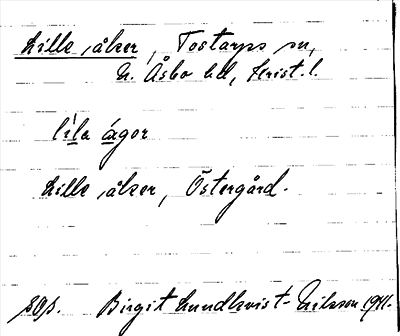 Lille åker, Tostarps sn,
N. Åsbo hd, Krist. l.
líla ágor
Lille åker, Östergård.
Birgit Lundkvist-Nilsson 1941.